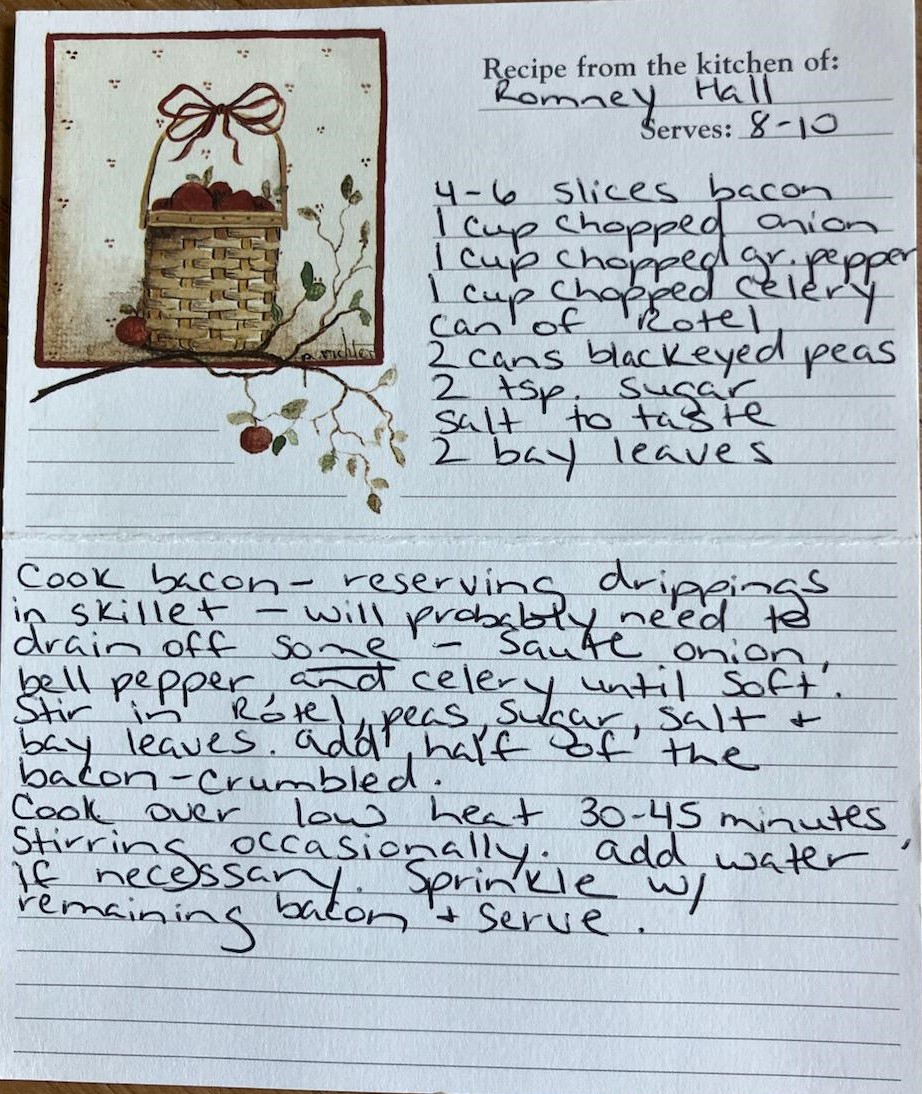 Recipe from the kitchen of:
Romney Hall
Serves: 8-10
4-6 slices bacon
1 cup chopped onion
1 cup chopped gr. pepper
1 cup chopped celery
can of Rotel
2 cans blackeyed peas
2 tsp. sugar
salt to taste
2 bay leaves
Cook bacon - reserving drippings
in skillet - will probably need to
drain off some - Sauté onion,
bell pepper, and celery until soft.
Stir in Rotel, peas, sugar, salt +
bay leaves. add half of the
bacon-crumbled.
Cook over low heat 30-45 minutes,
stirring occasionally. add water
if necessary. Sprinkle w/
remaining bacon + serve.